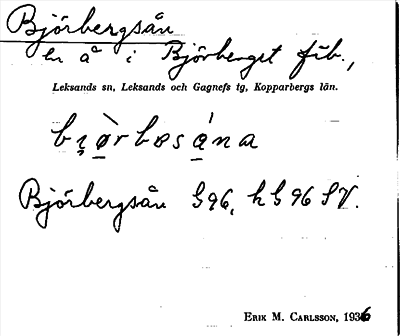 Björbergsån
en å i Björberget fäb.,
Leksands sn, Leksands och Gagnefs tg, Kopparbergs län.
Björbergsån G96, hG96 SV.
ERIK M. CARLSSON, 1936